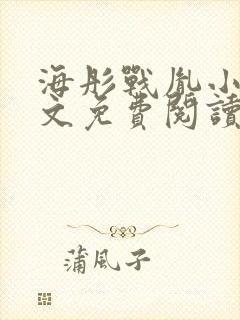 海彤戰胤小
文免費閱讀
蒲風子